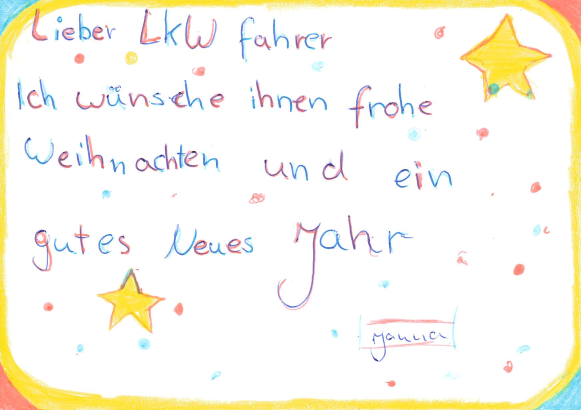 Lieber LKW fahrer
Ich wünsche ihnen frohe
Weihnachten und ein
gutes Neues Jahr
Janna